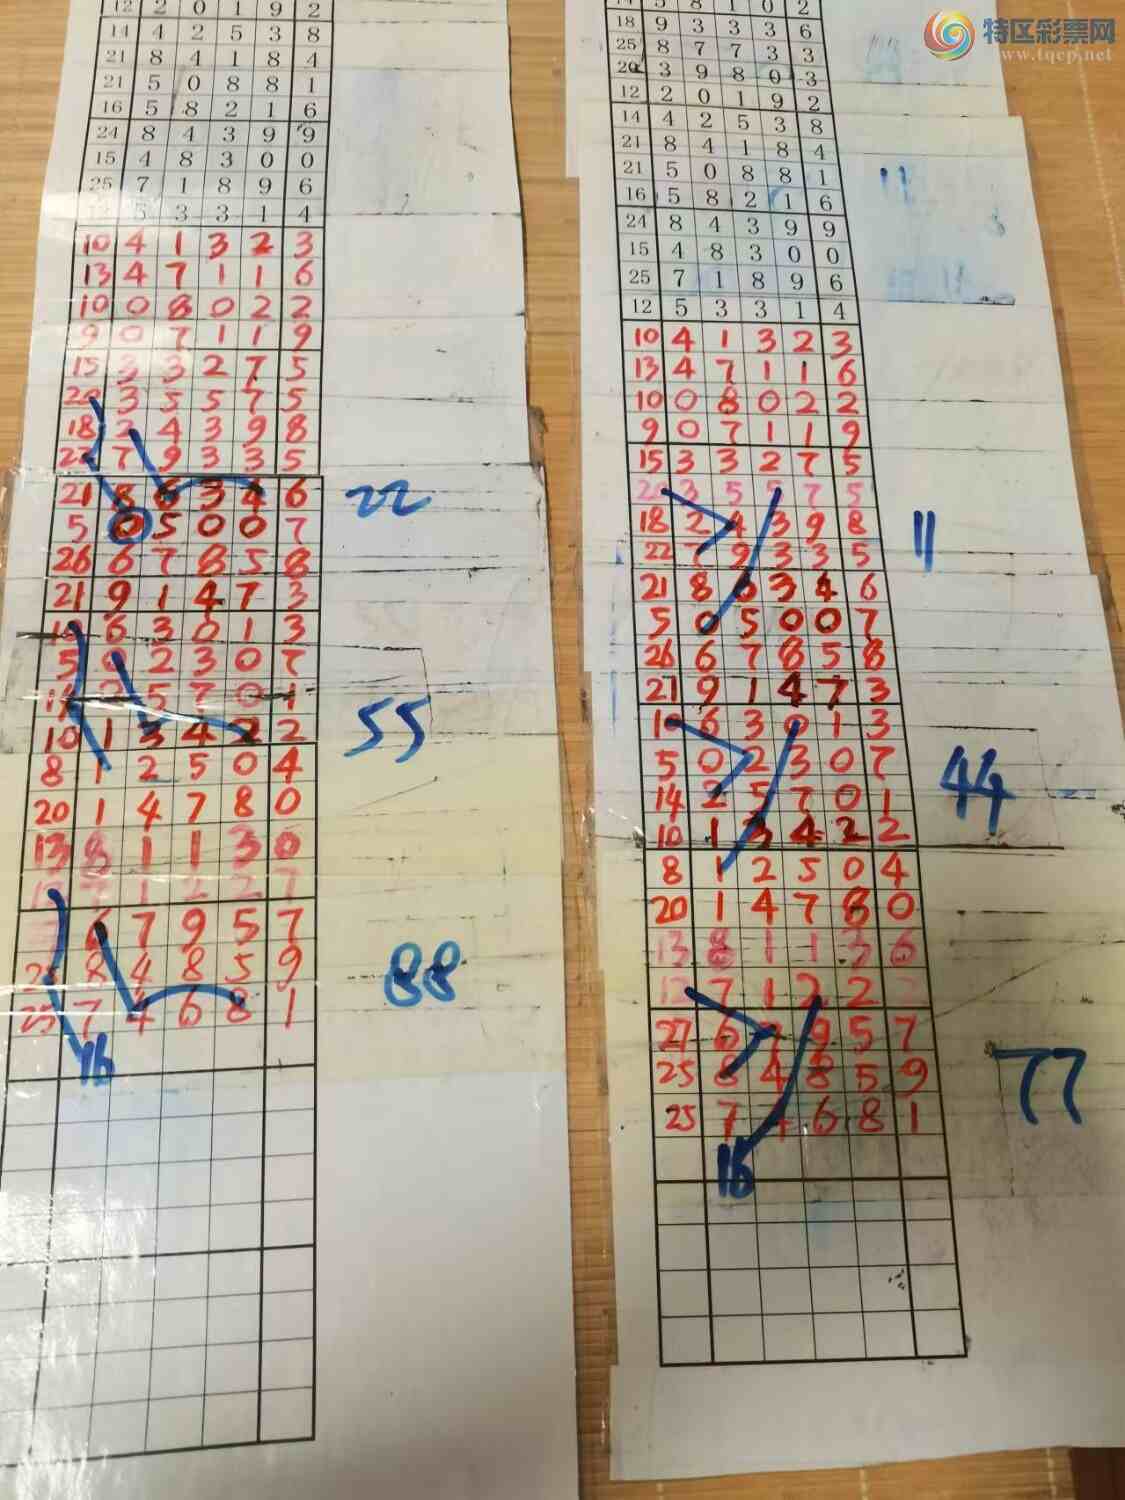 特区彩票网
www.tqcp.net
12 2 0 1 9 2
14 4 2 5 3 8
21 8 4 1 8 4
21 5 0 8 8 1
16 5 8 2 1 6
24 8 4 3 9 9
15 4 8 3 0 0
25 7 1 8 9 6
5 3 3 1 4
10 4 1 3 2 3
13 4 7 1 1 6
10 0 8 0 2 2
9 0 7 1 1 9
15 3 3 2 7 5
20 3 5 5 7 5
18 2 4 3 9 8
22 7 9 3 3 5
21 8 6 3 4 6
22
5 0 5 0 0 7
26 6 7 8 5 8
21 9 1 4 7 3
10 6 3 0 1 3
5 0 2 3 0 7
14 2 5 7 0 1
55
10 1 3 4 2 2
8 1 2 5 0 4
20 1 4 7 8 0
13 8 1 1 3 0
7 1 2 2 7
6 7 9 5 7
25 8 4 8 5 9
88
25 7 4 6 8 1
16
14 5 8 1 0 2
18 9 3 3 3 6
25 8 7 7 3 3
20 3 9 8 0 3
12 2 0 1 9 2
14 4 2 5 3 8
21 8 4 1 8 4
21 5 0 8 8 1
16 5 8 2 1 6
24 8 4 3 9 9
15 4 8 3 0 0
25 7 1 8 9 6
12 5 3 3 1 4
10 4 1 3 2 3
13 4 7 1 1 6
10 0 8 0 2 2
9 0 7 1 1 9
15 3 3 2 7 5
20 3 5 5 7 5
18 2 4 3 9 8
11
22 7 9 3 3 5
21 8 6 3 4 6
5 0 5 0 0 7
26 6 7 8 5 8
21 9 1 4 7 3
10 6 3 0 1 3
5 0 2 3 0 7
44
14 2 5 7 0 1
10 1 3 4 2 2
8 1 2 5 0 4
20 1 4 7 8 0
13 8 1 1 3 6
12 7 1 2 2
27 6 7 9 5 7
25 8 4 8 5 9
77
25 7 4 6 8 1
16